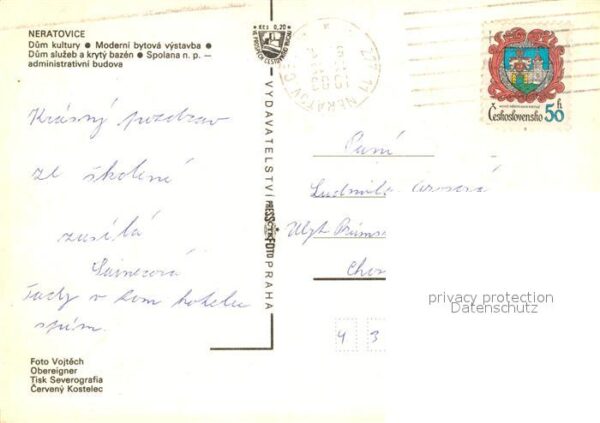 NERATOVICE
Dům kultury ● Moderní bytová výstavba ●
Dům služeb a krytý bazén ● Spolana n. p. —
administrativní budova
Krásný pozdrav
ze školení
zasílá
Tady v tom hotelu
spím.
Foto Vojtěch
Obereigner
Tisk Severografia
Červený Kostelec
Kčs 0,20
VYDAVATELSTVÍ PRESSFOTO PRAHA
NERATOVICE
Československo 50 h
Paní
Ludmila
Chom
4 3
privacy protection
Datenschutz